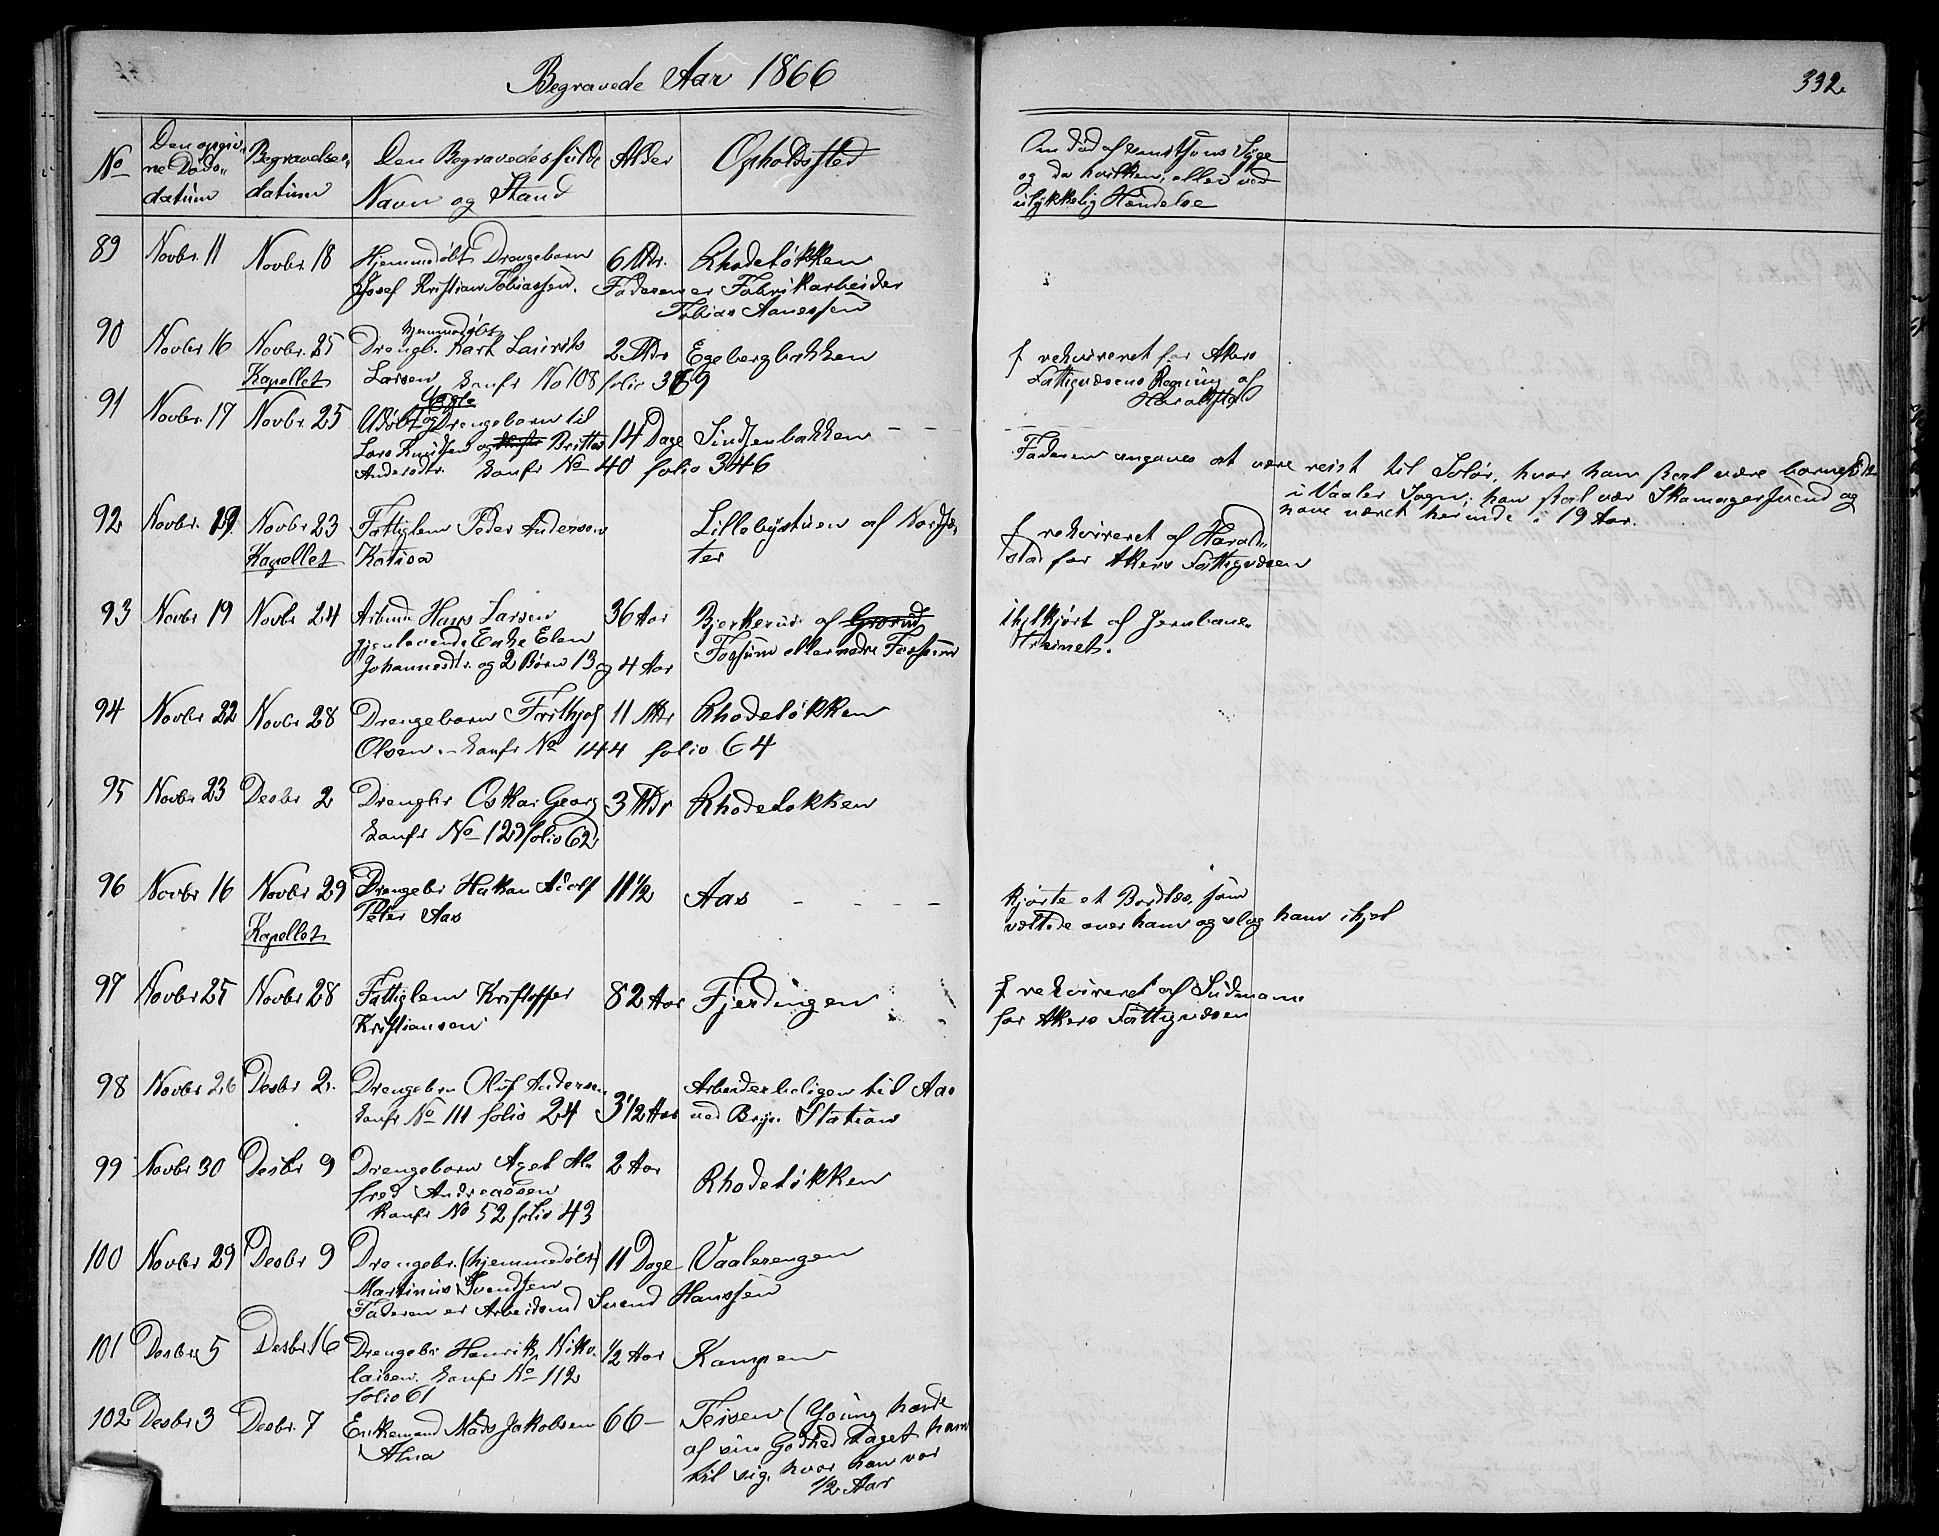 Begravede Aar 1866
332.
No
Den opgiv-
ne Døds-
datum
Begravelses-
datum
Den Begravedes fulde
Navn og Stand
Alder
Opholdssted
Om død af Sygdom
og da hvilken, eller ved
ulykkelig Hændelse
89 Novbr. 11 Novbr 18 Hjemmedøbt Drengebarn 6 Mdr. Rhodeløkken
Josef Kristian Tobiassen. Faderen er Fabrikarbeider
Tobias Aanessen
hjemmedøbt
90 Novbr 16 Novbr. 25 Drengb. Karl Laurits 2 Mdr Egebergbakken
Kapellet Larsen Konfr No 108 folio 369
f rekvireret for Akers
Fattigvæsens Regning af
Haraldstad
91 Novbr. 17 Novbr. 25 Udøbt og Drengebarn til 14 Dage Sindsenbakken
Lars Knudsen og Britte
Andersdtr. Konfr No 40 folio 346
Faderen angaves at være reist til Solør, hvor han skal være barnefødt
i Vaaler Sogn; han skal vær Skomagersvend og
have været herinde i 19 Aar.
92 Novbr. 19. Novbr 23 Fattiglem Peder Andersen Lillebystuen af Nordse-
Kapellet Katisa ter
f rekvireret af Harald-
stad for Akers Fattigvæsen
93 Novbr 19 Novbr 24 Arbmd. Hans Larsen 36 Aar Bjerkerud af Grorud
gjenlevende Enke Elen Fossum eller nedre Fossum
Johannesdtr. og 2 Børn 13 og 4 Aar
ihjelkjørt af Jernbane-
trainet.
94 Novbr 22 Novbr 28 Drengebarn Frithjof 11 Mdr Rhodeløkken
Olsen – Konfr No 144 folio 64
95 Novbr 23 Desbr 2 Drengbr Oskar Georg 3 Mdr Rhodeløkken
Konfr No 129 folio 62
96 Novbr 16 Novbr 29 Drengebr Hakon Adolf 11½ Aas
Kapellet Peter Aas
kjørte et Bordlæs, som
væltede over ham og slog ham ihjel
97 Novbr 25 Novbr 28 Fattiglem Kristoffer 82 Aar Fjerdingen
Kristiansen
f rekvireret af Sudmann
for Akers Fattigvæsen
98 Novbr 26 Desbr 2. Drengebn. Oluf Andersen 3½ Aar Arbeiderboligen til Aas
Konfr No 111 folio 24 ved Bryn Station
99 Novbr 30 Desbr 9 Drengebarn Axel Al- 2 Aar Rhodeløkken
fred Andreassen
Konfr No 52 folio 43
100 Novbr 29 Desbr 9 Drengebr. (hjemmedøbt) 11 Dage Vaalerengen
Martinus Svendsen
Faderen er Arbeidsmd Svend Hanssen
101 Desbr 5 Desbr 16 Drengebr Henrik Niko- ½ Aar Kampen
laisen. Konfr No 112
folio 61
102 Desbr 3 Desbr. 7 Enkemand Mads Jakobsen 66 – Teisen (Young havde
Alna af sin Godhed taget ham
til sig, hvor han var
½ Aar